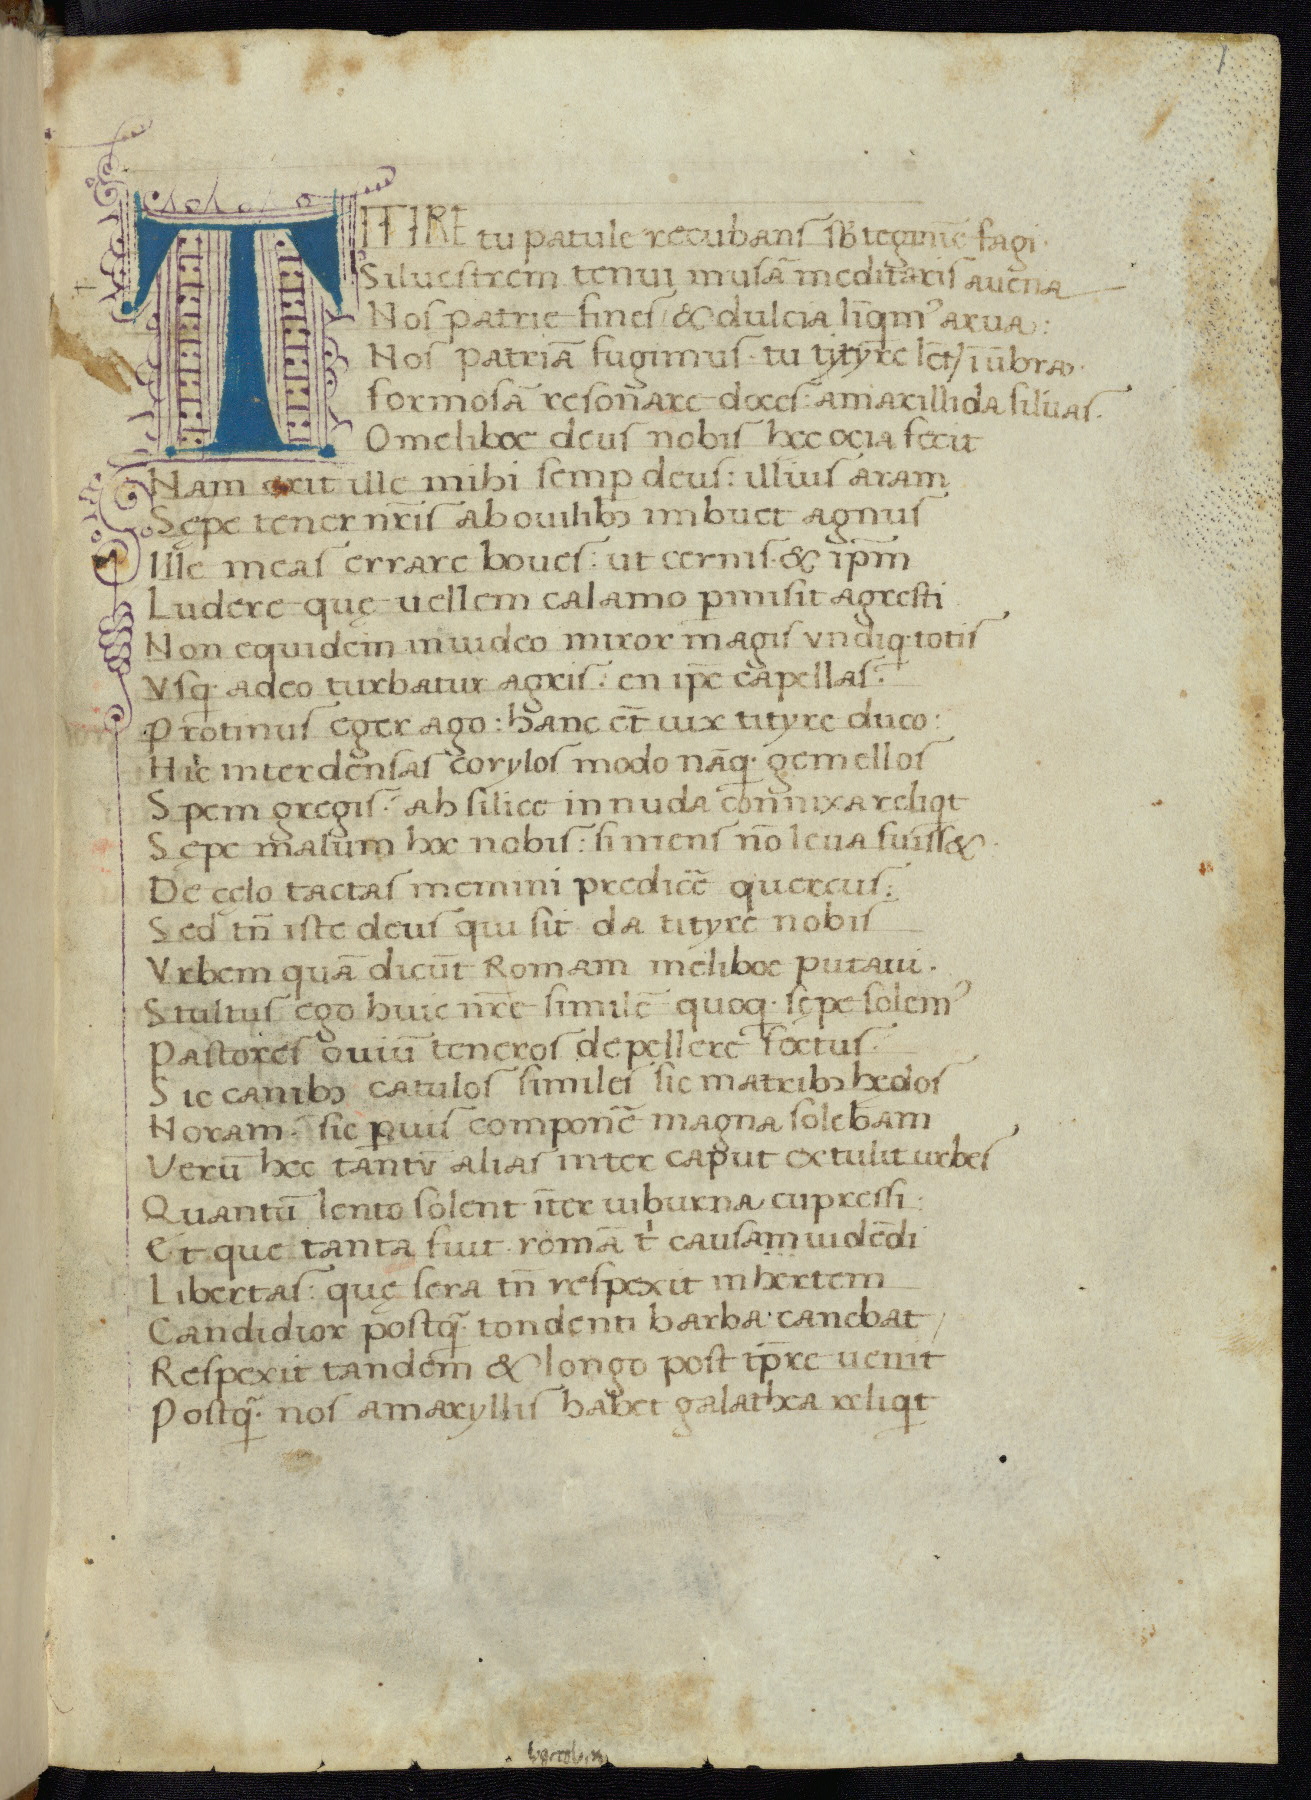 1
TITIRE tu patule recubans sb̄ tegmīe fagi·
Siluestrem tenui musā meditaris auena
Nos patrie fines / & dulcia līqm᾽ arua:
Nos patriā fugimus· tu tityre lēt᾽ ī ūbra·
formosā resonare doces: amarillida siluas.
O meliboe deus nobis hec ocia fecit
Nam erit ille mihi semp deus: illius aram
Sępe tener nr̄is ab ouilibꝫ imbuet agnus
Ille meas errare boues: ut cernis· & ip̄m
Ludere quę uellem calamo pmisit agresti
Non equidem inuideo miror magis vndiq· totis
Vsq· adeo turbatur agris: en ip̄e capellas:
Protinus eger ago: hanc et̄ uix tityre duco:
Hic inter densas corylos modo nāq· gemellos
Spem gregis: ah silice in nuda connixa reliqt
Sępe malum hoc nobis: si mens nō leua fuiss&·
De cęlo tactas memini predicē quercus:
Sed tn̄ iste deus qui sit da tityre nobis
Vrbem quā dicūt Romam meliboe putaui.
Stultus ego huic nr̄e similē quoq· sępe solem᾽
Pastores ouiū teneros depellere foetus·
Sic canibꝫ catulos similes sic matribꝫ hędos
Noram· sic ꝑuis componē magna solebam
Verū hec tantū alias inter caput extulit urbes
Quantū lento solent īter uiburna cupressi:
Et que tanta fuit romā tⁱ causam uidēdi
Libertas: quę sera tn̄ respexit inhertem
Candidior postq̄· tondenti barba· canebat
Respexit tandem & longo post tp̄re uenit
Postq̄· nos amaryllis habet galathea reliqt